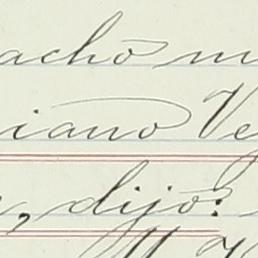 acho m
iano Ve
, dijo: